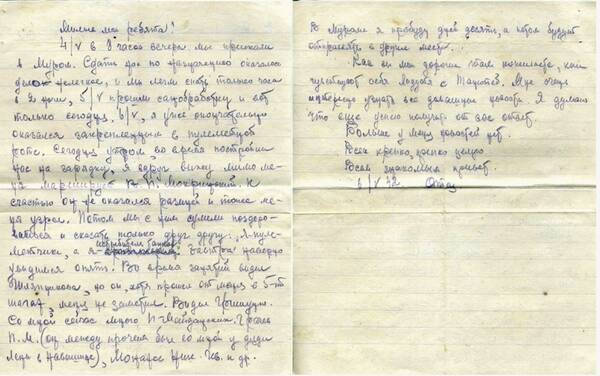 Милые мои ребята!
4/V в 8 часов вечера мы приехали
в Муром. Сдать по
дело нелегкое, и мы легли спать только часа
в 2 ночи, 5/V прошли санобработку и вот
только сегодня, 6/V, я уже окончательно
оказался закрепленным в пулеметной
роте. Сегодня утром, во время построения
нас на зарядку, я вдруг вижу мимо ме-
ня марширует В. П. Мокринский. К
счастью он не оказался разиней и тоже ме-
ня узрел. Потом мы с ним сумели поздоро-
ваться и сказать только друг другу: "Я пуле-
метчик, а я истребитель танков". Завтра наверно
увидимся опять. Во время занятий видел
Шляпникова, но он, хотя прошел от меня в 5-ти
шагах, меня не заметил. Видел
Со мной сейчас много П-Майданских.
П. М. (он между прочим был со мной у дяди
Лёди в Навашине), и др.
В Муроме я пробуду дней десять, а потом будут
отправлять в другие места.
Как вы мои дорогие там поживаете, как
чувствуют себя с Мне очень
интересно узнать все домашние новости. Я думаю
что еще успею получить от вас ответ.
Больше у меня новостей нет.
Всех крепко, крепко целую
Всем знакомым привет.
6/V 42 Отец